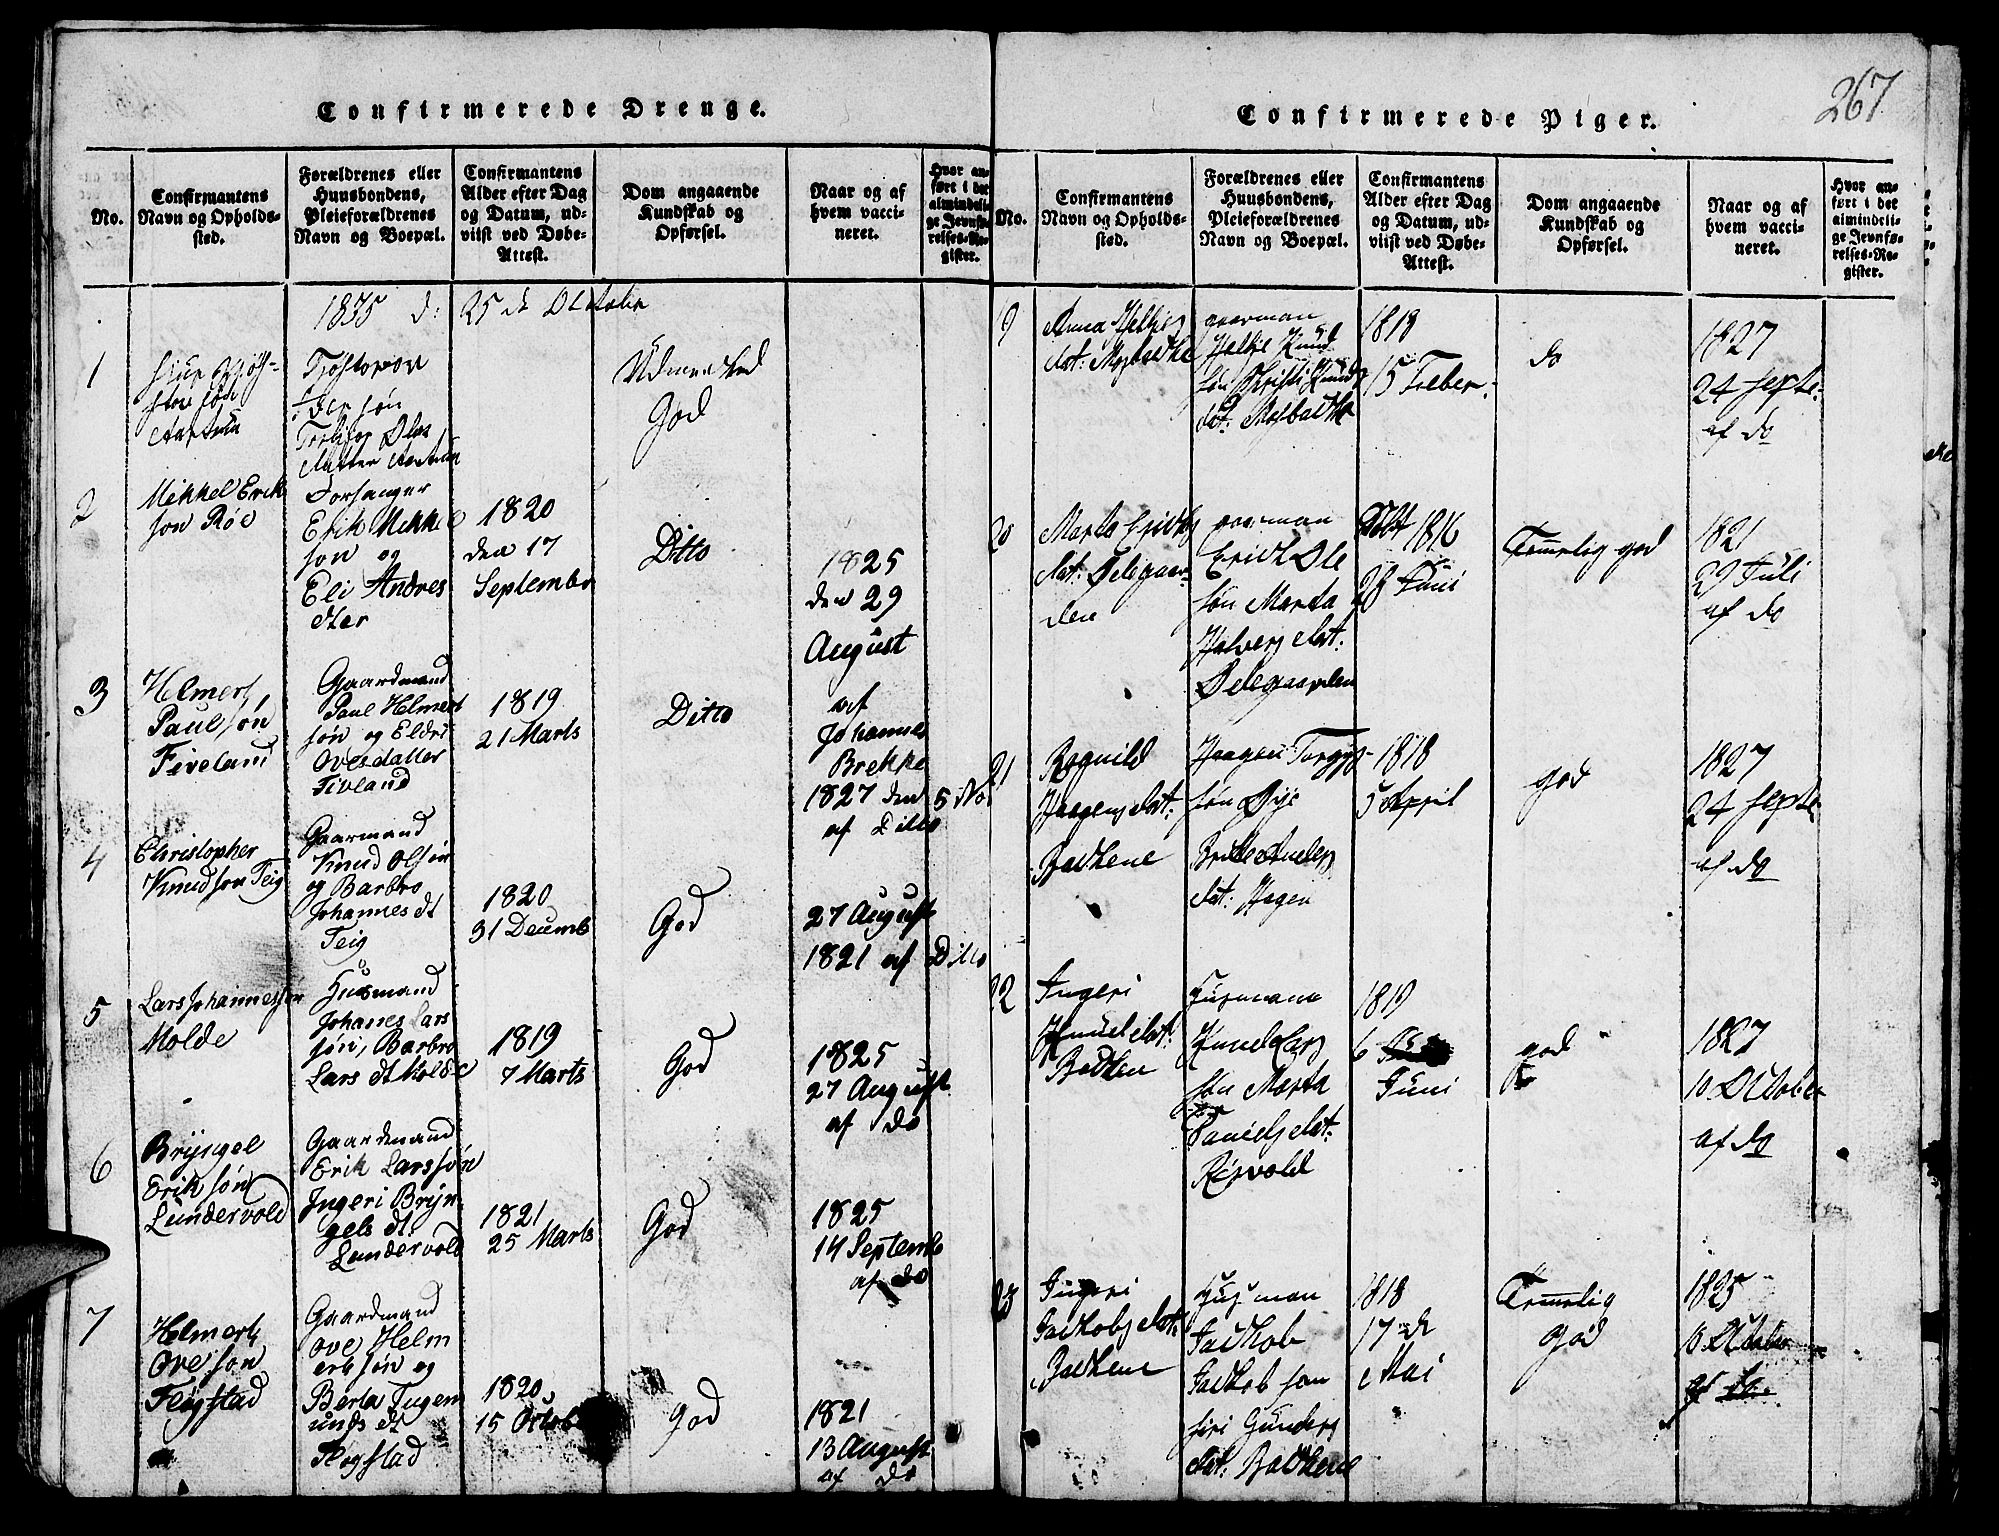 267
Confirmerede Drenge.
No.
Confirmantens
Navn og Opholds-
sted.
Forældrenes eller
Huusbondens,
Pleieforældrenes
Navn og Boepæl.
Confirmantens
Alder efter Dag
og Datum, ud-
viist ved Døbe-
Attest.
Dom angaaende
Kundskab og
Opførsel.
Naar og af
hvem vacci-
neret.
Hvor an-
ført i det
almindeli-
ge Jevnfø-
relses-Re-
gister.
1835 d: 25 de October
1
søn
Aartun
søn
Aartun
Udmærked
God
2
Mikkel Erik
søn Røe
Forsanger
Erik Mekkel
søn og
Eli Andres
dter
1820
den 17
Septembr
Ditto
1825
den 29
August
af
Johannes
Brekke
3
Helmert
Paulsøn
Fiveland
Gaardmand
Paul Helmert
søn og Eldri
Ovesdatter
Fivland
1819
21 Marts
Ditto
1827 den 5 No
af Ditto
4
Christopher
Knudsøn Teig
Gaarmand
Knud Olsøn
og Barbro
Johannes dt
Teig
1820
31 Decemb
God
27 August
1821 af Ditto
5
Lars Johannessøn
Molde
Husmand
Johanes Lars
søn, Barbro
Lars dt Molde
1819
7 Marts
God
1825
27 August
af do
6
Bryngel
Eriksøn
Lundervold
Gaardmand
Erik Larssøn
Ingeri Bryn
gels dt
Lundervold
1821
25 Marts
God
1825
14 Septemb
af do
7
Helmert
Ovesøn
Fløgstad
Gaardmand
Ove Helm
ert søn og
Berta Ingem
unds dt
Fløgstad
1820
15 Octob
God
1821
13 August
af do
Confirmerede Piger.
No.
Confirmantens
Navn og Opholds-
sted.
Forældrenes eller
Huusbondens,
Pleieforældrenes
Navn og Boepæl.
Confirmantens
Alder efter Dag
og Datum, ud-
viist ved Døbe-
Attest.
Dom angaaende
Kundskab og
Opførsel.
Naar og af
hvem vacci-
neret.
Hvor an-
ført i det
almindeli-
ge Jevnfø-
relses-Re-
gister.
9
Anna Helljes
dat: Mosbackke
gaarman
Hellje Knud
søn Christi Knuds
dat: Mosbackke
1818
15 Feber
do
1827
24 Septe
af do
20
Marta Ericks
dat: Ødegaar-
den
gaarman
Erick Ole
søn Marta
Halvers dat:
Ødegaarden
1816
28 Juni
Temmelig god
1821
29 Juli
af do
21
Ragnild
Haagens dat:
Backene
Haagen Torgys
søn Øye
Brite Anders
dat: Hagen
1818
5 April
god
1827
24 Septe
af do
22
Ingeri
Knuds dat:
Backen
Husmann
Knud Lars
søn Marta
Daniels dat:
Risvold
1819
6
Juni
god
1827
10 October
af do
23
Ingeri
Jackobs dat:
Backene
Husman
Jackob
Jackob søn
Siri Gunders
dat: Backene
1818
17 de
Mai
Temmelig
God
1825
October